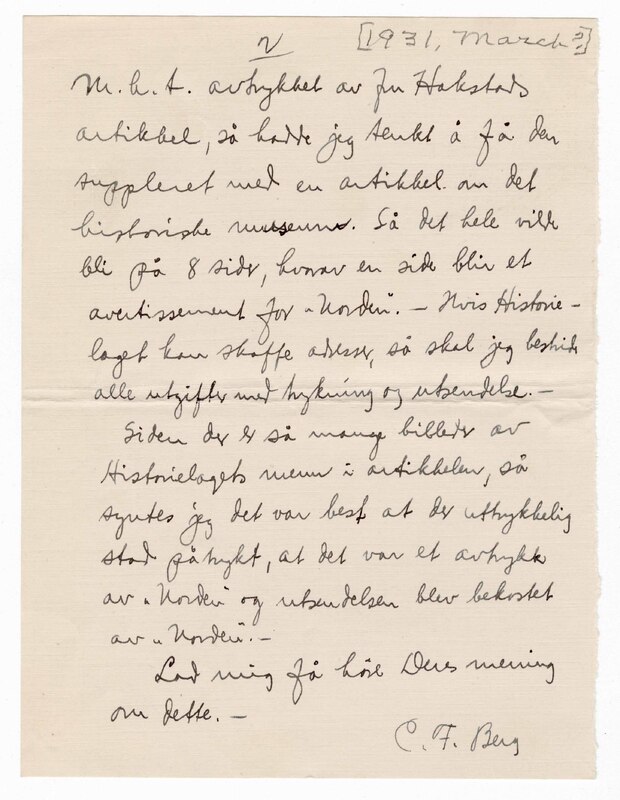 2
[1931, March?]
M.h.t. avtrykket av fru Hokstads
artikkel, så hadde jeg tenkt å få den
suppleret med en artikkel om det
historiske museum. Så det hele vilde
bli på 8 sider, hvorav en side blir et
avertissement for "Norden". — Hvis Historie-
laget kan skaffe adresser, så skal jeg bestride
alle utgifter med trykning og utsendelse. —
Siden der er så mange billeder av
Historielagets menn i artikkelen, så
syntes jeg det var best at der uttrykkelig
stod påtrykt, at det var et avtrykk
av "Norden" og utsendelsen blev bekostet
av "Norden". —
Lad mig få höre Deres mening
om dette. —
C. F. Berg